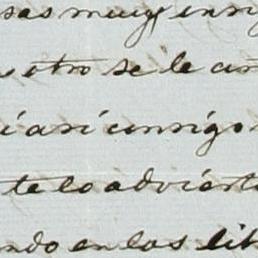 sas muy insig
s otro se le
i asi consigo
te lo advierto
ndo en las lib